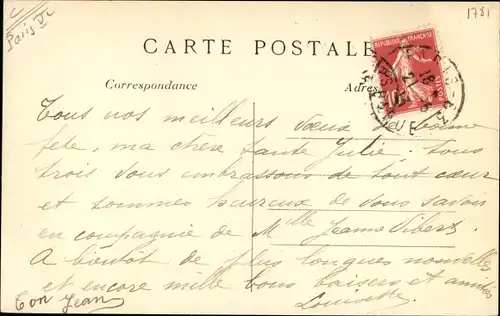 Paris Vᵉ
1781
CARTE POSTALE
REPUBLIQUE FRANÇAISE
Correspondance
Adres
Tous nos meilleurs vœux de bonne
fête, ma chère tante Julie; tous
trois vous embrassons de tout cœur
et sommes heureux de vous savoir
en compagnie de Mlle Jeanne Vibert
A bientôt de plus longues nouvelles,
et encore mille bons baisers et amitiés
Ton Jean